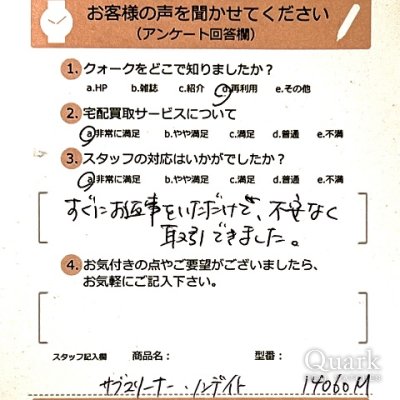 お客様の声を聞かせてください
(アンケート回答欄)
1. クォークをどこで知りましたか？
a.HP b.雑誌 c.紹介 d.再利用 e.その他
2. 宅配買取サービスについて
a.非常に満足 b.やや満足 c.満足 d.普通 e.不満
3. スタッフの対応はいかがでしたか？
a.非常に満足 b.やや満足 c.満足 d.普通 e.不満
すぐにお返事をいただけて、不安なく
取引できました。
4. お気付きの点やご要望がございましたら、
お気軽にご記入下さい。
スタッフ記入欄 商品名： 型番：
サブマリーナー・ノンデイト 14060M
Quark